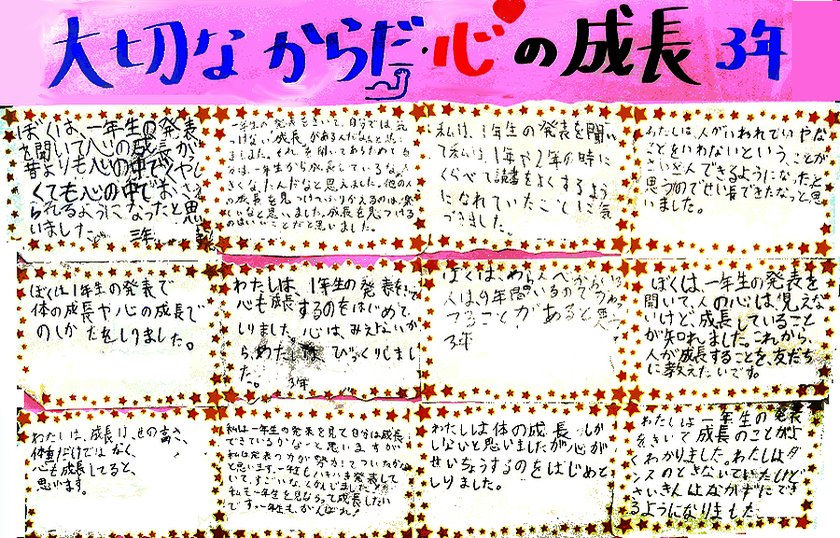 大切なからだ・心の成長 3年
ぼくは、一年生の発表
を聞いて心の成長が
昔よりも心の中でくやし
くても心の中でおさえ
られるようになったと思
いました。 三年
一年生の発表をきいて、自分では気
つけない成長があるんだなと思い
ました。それを聞いてあらためて自
分は一年生から成長しているな、大
きくなったんだなと思えました。他の人
の成長を見つけてふりかえるのは楽し
いなと思いました。成長を見つける
のはいいことだと思いました。
私は、1年生の発表を聞い
て私は、1年や2年の時に
くらべて読書をよくするよう
になれていたことに気
づきました。
わたしは人がいわれていやな
ことをいわないという、ことが
さいきんできるようになったと
思うのでせい長できたなっと思
いました。
ぼくは1年生の発表で
体の成長や心の成長で
のしかたをしりました。
わたしは、1年生の発表をきいて
心も成長するのをはじめて、
しりました。心は、みえないか
ら、めた びっくりしまし
た。 3年
ぼくは、わ
人は9年間いるので
つることがあると思
3年
ぼくは、一年生の発表を
聞いて、人の心は見えな
いけど、成長していること
が知れました。これから、
人が成長することを、友だち
に教えたいです。
わたしは、成長は、せの高さ、
体重だけではなく、
心も成長してると、
思います。
私は一年生の発表を見て自分は成長
できているかなーと思いますが
私は発表の力が努力!てついたかな
と思います。一年もいっぱい発表して
いて、すごいな、とかんじました!
私も一年生を見ならって成長したい
です。一年生も、がんばれ!
わたしは体の成長しか
しないと思いましたが心が
せいちょうするのをはじめて
しりました。
わたしは一年生の発表
をきいて成長のことがよ
くわかりました。わたしはダ
ンスのときないていたけど
さいきんはなかずにでき
るようになりました